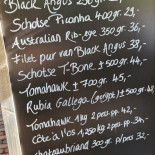 Black Angus 250gr.
Schotse Picanha 400gr. 29,-
Australian Rib-eye 350gr. 36,-
Filet pur van Black Angus 38,-
Schotse T-Bone ± 500gr. 44,-
Tomahawk ± 700 gr. 45,-
Rubia Gallega
Tomahawk 1kg 2 pers. pp. 42,-
Côte à l'os 1.250kg 2 pers/pp. 34,-
chateaubriand